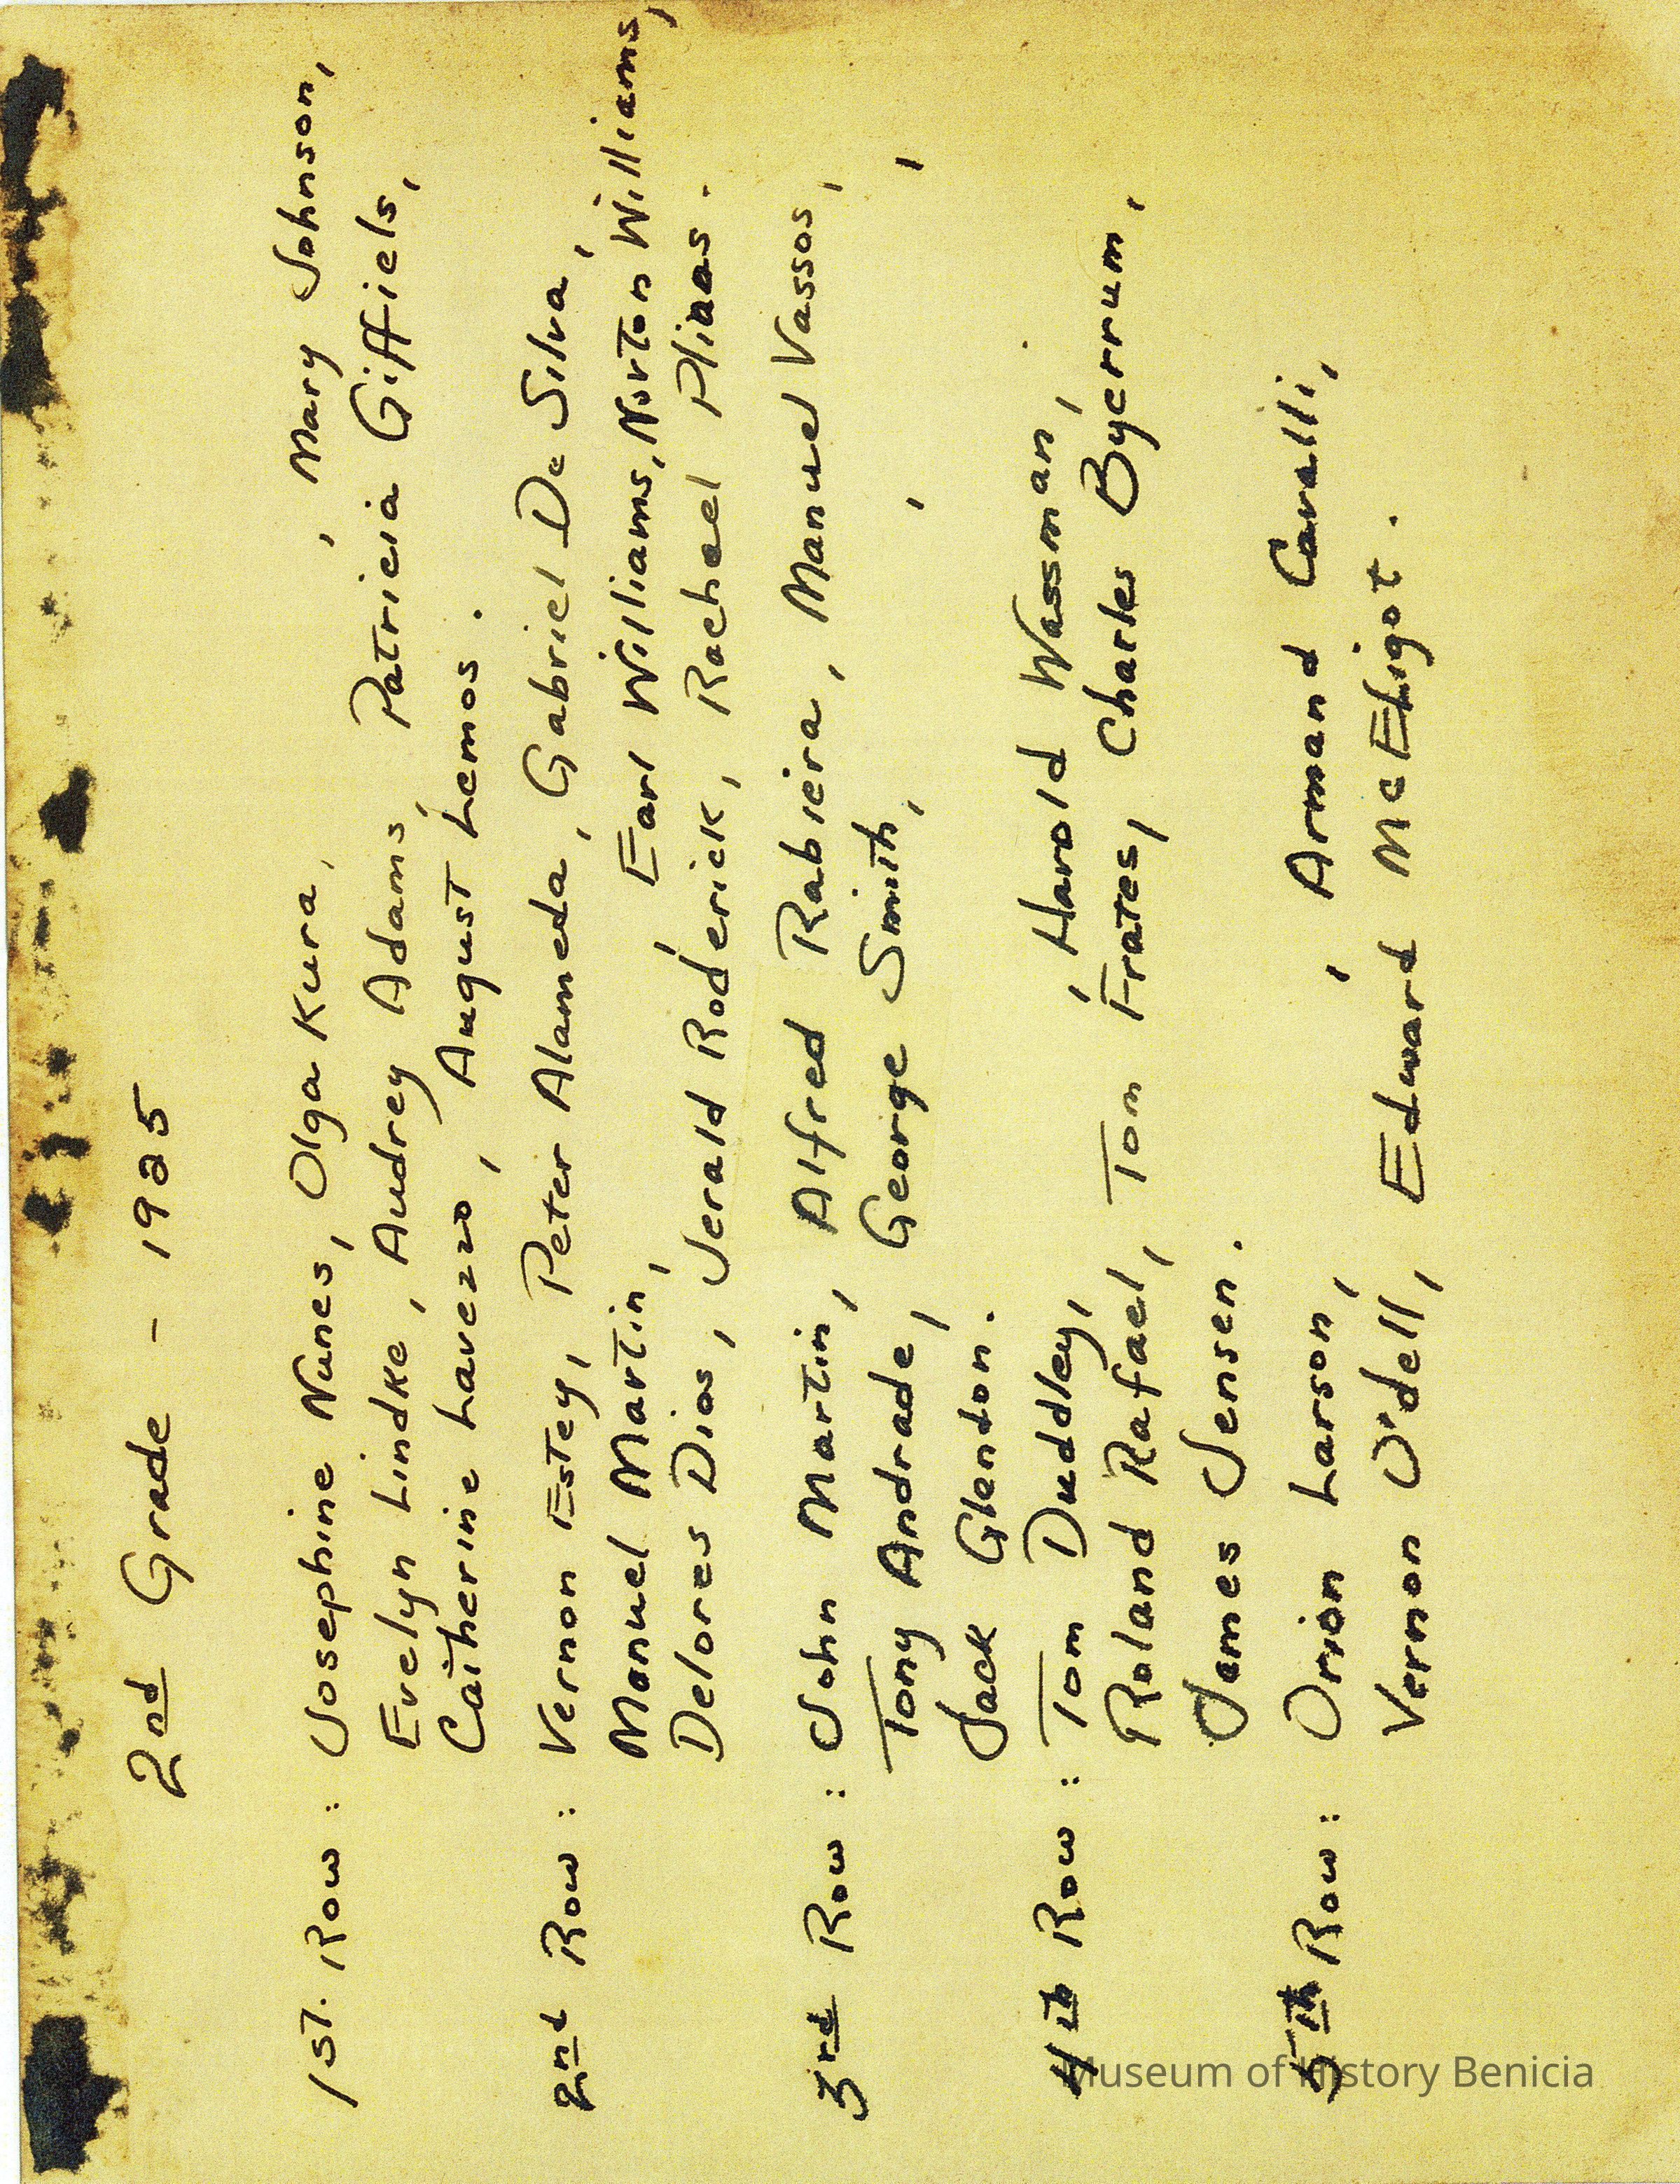 2nd Grade - 1925
1st. Row: Josephine Nunes, Olga Kura, , Mary Johnson,
Evelyn Lindke, Audrey Adams, Patricia Giffiels,
Catherine Lavezzo, August Lemos.
2nd Row: Vernon Estey, Peter Alameda, Gabriel De Silva,
Manuel Martin, , Earl Williams, Norton Williams,
Delores Dias, Jerald Roderick, Racheel Pliaas.
3rd Row: John Martin, Alfred Rabieira, Manuel Vassos,
Tony Andrade, George Smith, , ,
Jack Glendon.
4th Row: Tom Duddley, , Harold Wassman, .
Roland Rafael, Tom Frates, Charles Byerrum,
James Jensen.
5th Row: Orion Larson, , Armand Cavalli,
Vernon O'dell, Edward McElligot.
Museum of History Benicia